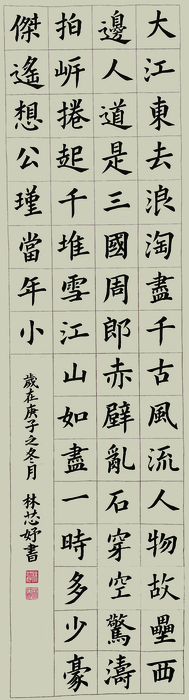 大江東去浪淘盡千古風流人物故壘西
邊人道是三國周郎赤壁亂石穿空驚濤
拍岍捲起千堆雪江山如盡一時多少豪
傑遙想公瑾當年小
歲在庚子之冬月 林芯妤書